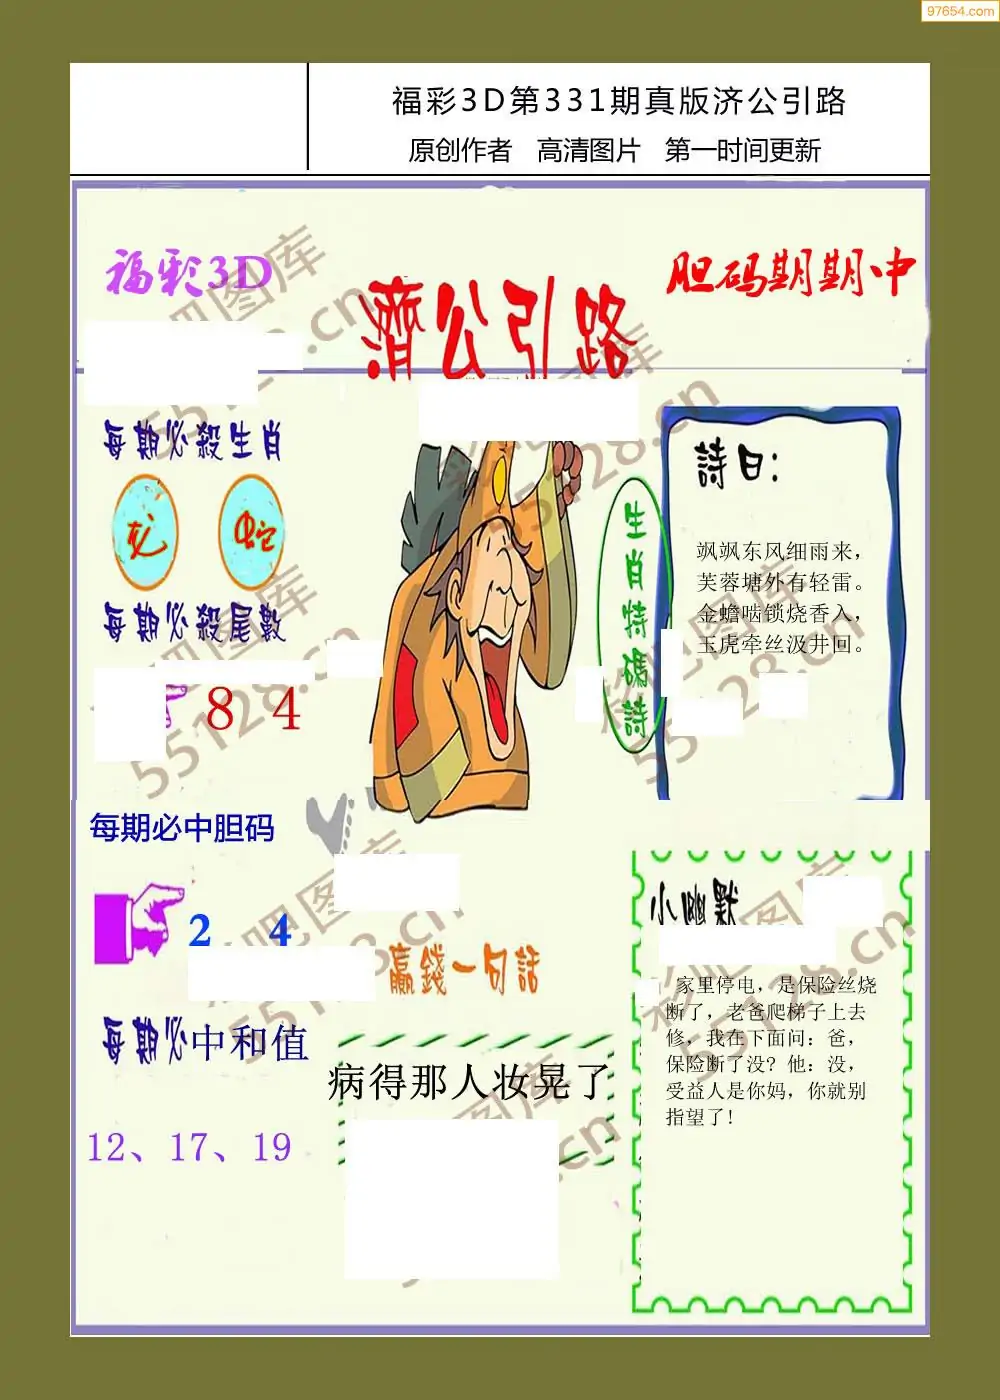 97654.com
福彩3D第331期真版济公引路
原创作者 高清图片 第一时间更新
福彩3D
濟公引路
胆码期期中
每期必殺生肖
龙 蛇
每期必殺尾數
8 4
每期必中胆码
2 4
每期必中和值
12、17、19
生肖特碼詩
詩曰：
飒飒东风细雨来，
芙蓉塘外有轻雷。
金蟾啮锁烧香入，
玉虎牵丝汲井回。
贏錢一句話
病得那人妆晃了
小幽默
家里停电，是保险丝烧
断了，老爸爬梯子上去
修，我在下面问：爸，
保险断了没？他：没，
受益人是你妈，你就别
指望了！
彩吧图库
55128.cn